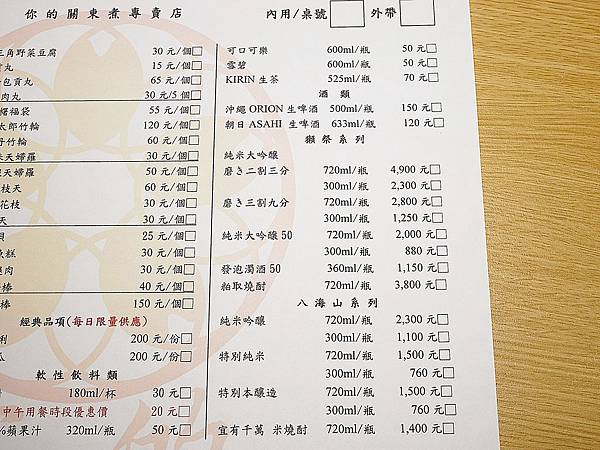 你的關東煮專賣店 內用/桌號 外帶
三角野菜豆腐 30 元/個
丸 15 元/個
包貢丸 65 元/個
肉丸 30 元/5 個
福袋 55 元/個
太郎竹輪 120 元/個
竹輪 60 元/個
天婦羅 30 元/個
天婦羅 50 元/個
枝天 60 元/個
花枝 30 元/個
天 30 元/個
25 元/個
糕 30 元/個
肉 30 元/個
棒 40 元/個
棒 150 元/個
經典品項(每日限量供應)
200 元/份
200 元/份
軟性飲料類
180ml/杯 30 元
中午用餐時段優惠價 20 元
%蘋果汁 320ml/瓶 50 元
可口可樂 600ml/瓶 50 元
雪碧 600ml/瓶 50 元
KIRIN 生茶 525ml/瓶 70 元
酒 類
沖繩 ORION 生啤酒 500ml/瓶 150 元
朝日 ASAHI 生啤酒 633ml/瓶 120 元
獺祭系列
純米大吟釀
磨き二割三分 720ml/瓶 4,900 元
300ml/瓶 2,300 元
磨き三割九分 720ml/瓶 2,800 元
300ml/瓶 1,250 元
純米大吟釀 50 720ml/瓶 2,000 元
300ml/瓶 880 元
發泡濁酒 50 360ml/瓶 1,150 元
粕取燒酎 720ml/瓶 3,800 元
八海山系列
純米吟釀 720ml/瓶 2,300 元
300ml/瓶 1,100 元
特別純米 720ml/瓶 1,500 元
300ml/瓶 760 元
特別本釀造 720ml/瓶 1,500 元
300ml/瓶 760 元
宜有千萬 米燒酎 720ml/瓶 1,400 元